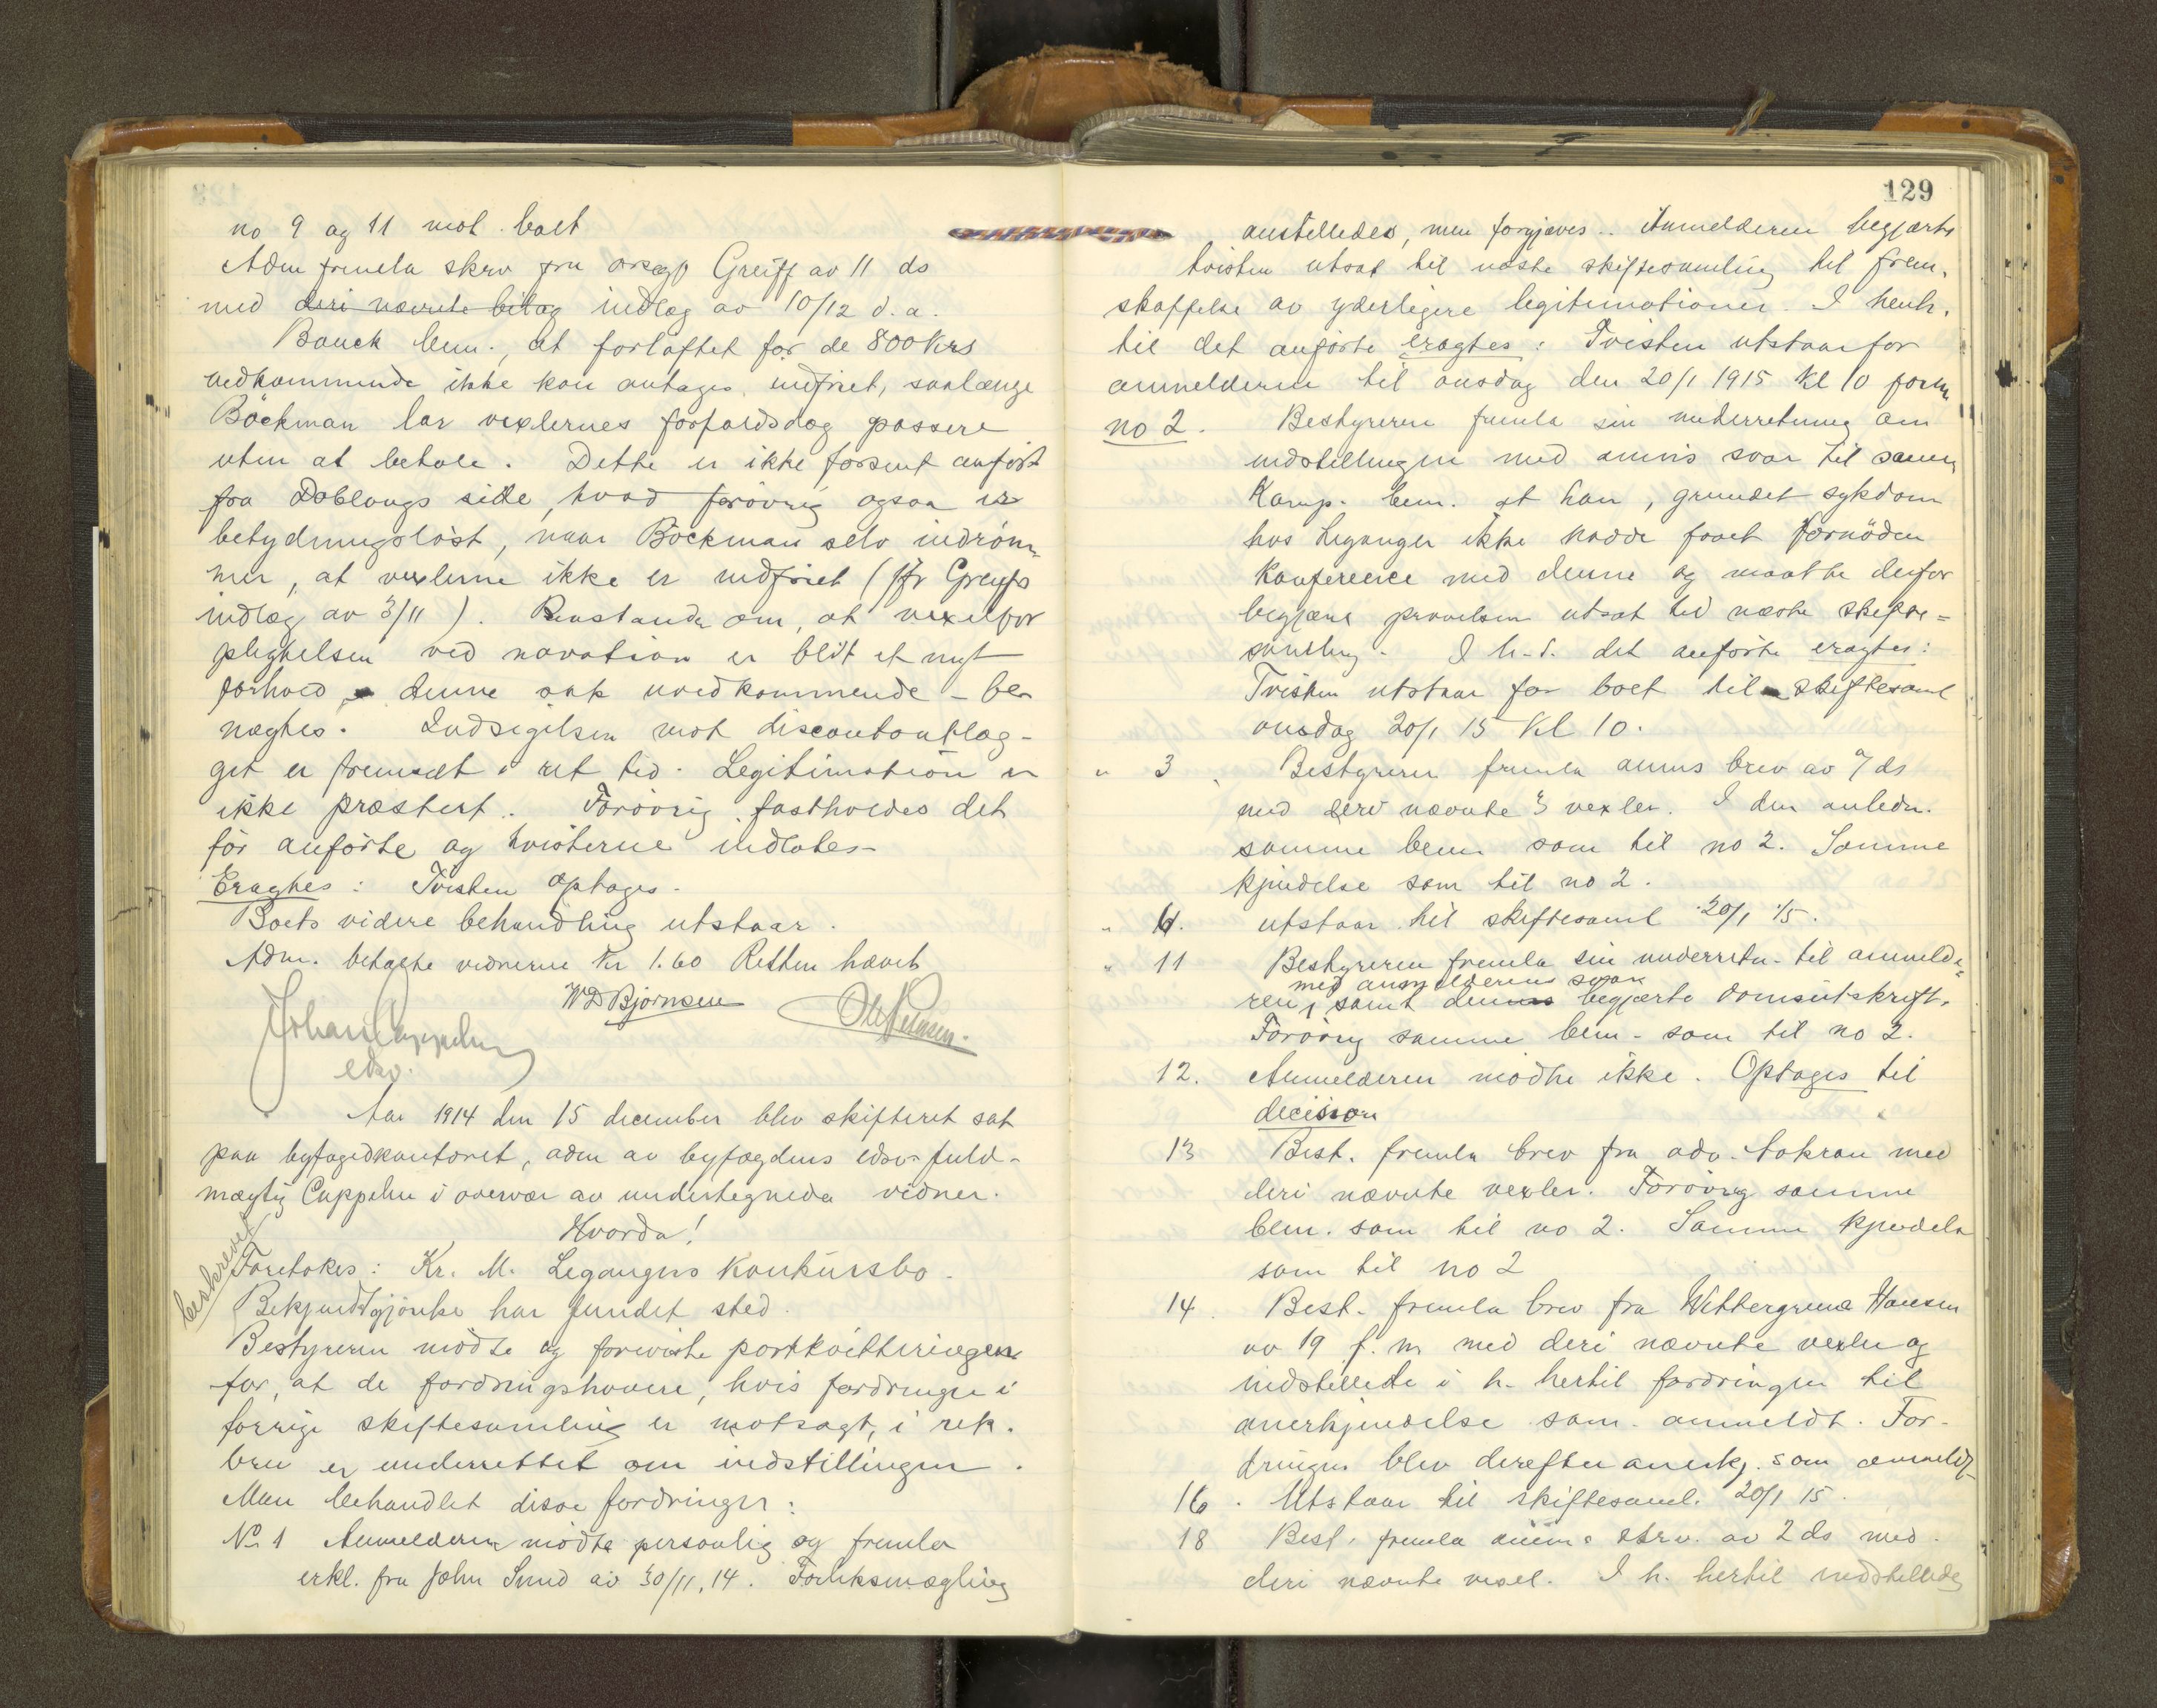 no 9 og 11 mot boet
Adm fremla skrv fra orsagf Greiff av 11 ds
med deri nævnte bilag indlæg av 10/12 d. a.
Bauck bem., at forløftet for de 800 Krs
vedkommende ikke kan antages indfriet, saalænge
Böckman lar vexlernes forfaldsdag passere
uten at betale. Dette er ikke forsent anført
fra Doblougs side, hvad forøvrig ogsaa er
betydningsløst, naar Böckman selv indrøm-
mer, at vexlerne ikke er indfriet (jfr Greiffs
indlæg av 3/11). Paastanden om, at vexelfor
pligtelsen ved novation er blit et nyt
forhold denne sak uvedkommende - be-
nægtes. Indsigelsen mot discontoutlæg-
get er fremsat i ret tid. Legitimation er
ikke præstert. Forøvrig fastholdes det
før anførte og tvisterne indlates
Eragtes: Tvisten optages.
Boets videre behandling utstaar.
Adm. betalte vidnerne Kr 1.60 Retten hævet
Johan Cappelen WD Bjørnsen
edsv.
Aar 1914 den 15 december blev skifteret sat
paa byfogedkontoret, adm av byfogdens edsv. fuld-
mægtig Cappelen i overvær av undertegnede vidner.
Hvorda!
beskrevet
Foretokes: Kr. M. Legangers konkursbo.
Bekjendtgjørelse har fundet sted.
Bestyreren mødte og foreviste postkvitteringen
for, at de fordringshavere, hvis fordringer i
forrige skiftesamling er motsagt, i rek.
brev er underrettet om indstillingen.
Man behandlet disse fordringer:
No 1 Anmelderen mødte personlig og fremla
erkl. fra John Smid av 30/11, 14. Forliksmægling
129
anstilledes, men forgjæves. Anmelderen begjærte
tvisten utsat til næste skiftesamling til frem-
skaffelse av yderligere legitimationer. I henh.
til det anførte eragtes: Tvisten utstaar for
anmelderen til onsdag den 20/1 1915 kl 10 form
no 2. Bestyreren fremla sin underretning om
indstillingen med anm's svar til samme
Kamp. bem. at han, grundet sykdom
hos Leganger ikke hadde faaet fornøden
konference med denne og maatte derfor
begjære prøvelsen utsat til næste skifte=
samling. I h. t. det anførte eragtes:
Tvisten utstaar for boet til skiftesaml
onsdag 20/1 15 Kl 10.
" 3 Bestyreren fremla anms brev av 7 ds
med deri nævnte 3 vexler. I den anledn.
samme bem som til no 2. Samme
kjendelse som til no 2.
" 6. utstaar til skiftesaml 20/1 15.
" 11 Bestyreren fremla sin underretn. til anmelde-
med anmelderens svar
ren, samt dennes begjærte domsutskrift.
Forøvrig samme bem. som til no 2.
12. Anmelderen mødte ikke. Optages til
decision
13 Best. fremla brev fra adv. Aakran med
deri nævnte vexler. Forøvrig samme
bem. som til no 2. Samme kjendelse
som til no 2
14. Best. fremla brev fra Wettergreen Hansen
av 19 f. m. med deri nævnte vexler og
indstillede i h. hertil fordringen til
anerkjendelse som anmeldt. For-
dringen blev derefter anerkj. som anmeldt
16. Utstaar til skiftesaml. 20/1 15.
18 Best. fremla anm's skrv. av 2 ds med
deri nævnte vexel. I h. hertil indstilledes